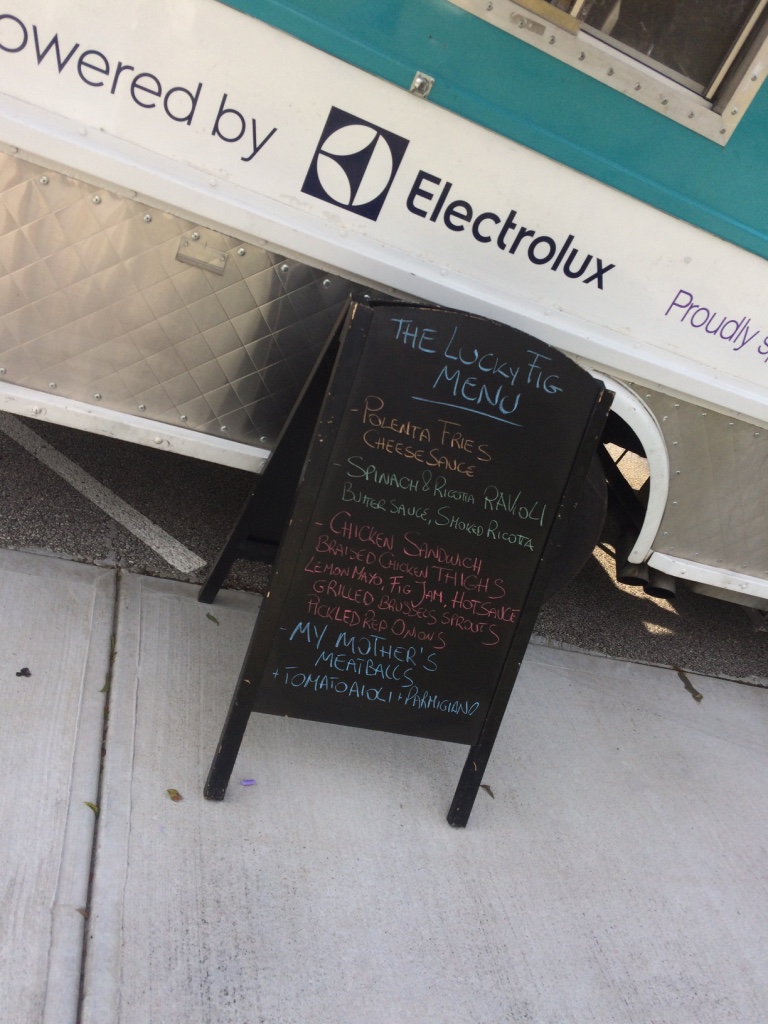 owered by Electrolux
Proudly s
THE LUCKY FIG
MENU
- POLENTA FRIES
CHEESE SAUCE
- SPINACH & RICOTTA RAVIOLI
BUTTER SAUCE, SMOKED RICOTTA
- CHICKEN SANDWICH
BRAISED CHICKEN THIGHS
LEMON MAYO, FIG JAM, HOT SAUCE
GRILLED BRUSSELS SPROUTS
PICKLED RED ONIONS
- MY MOTHER'S
MEATBALLS
+ TOMATO AIOLI + PARMIGIANO